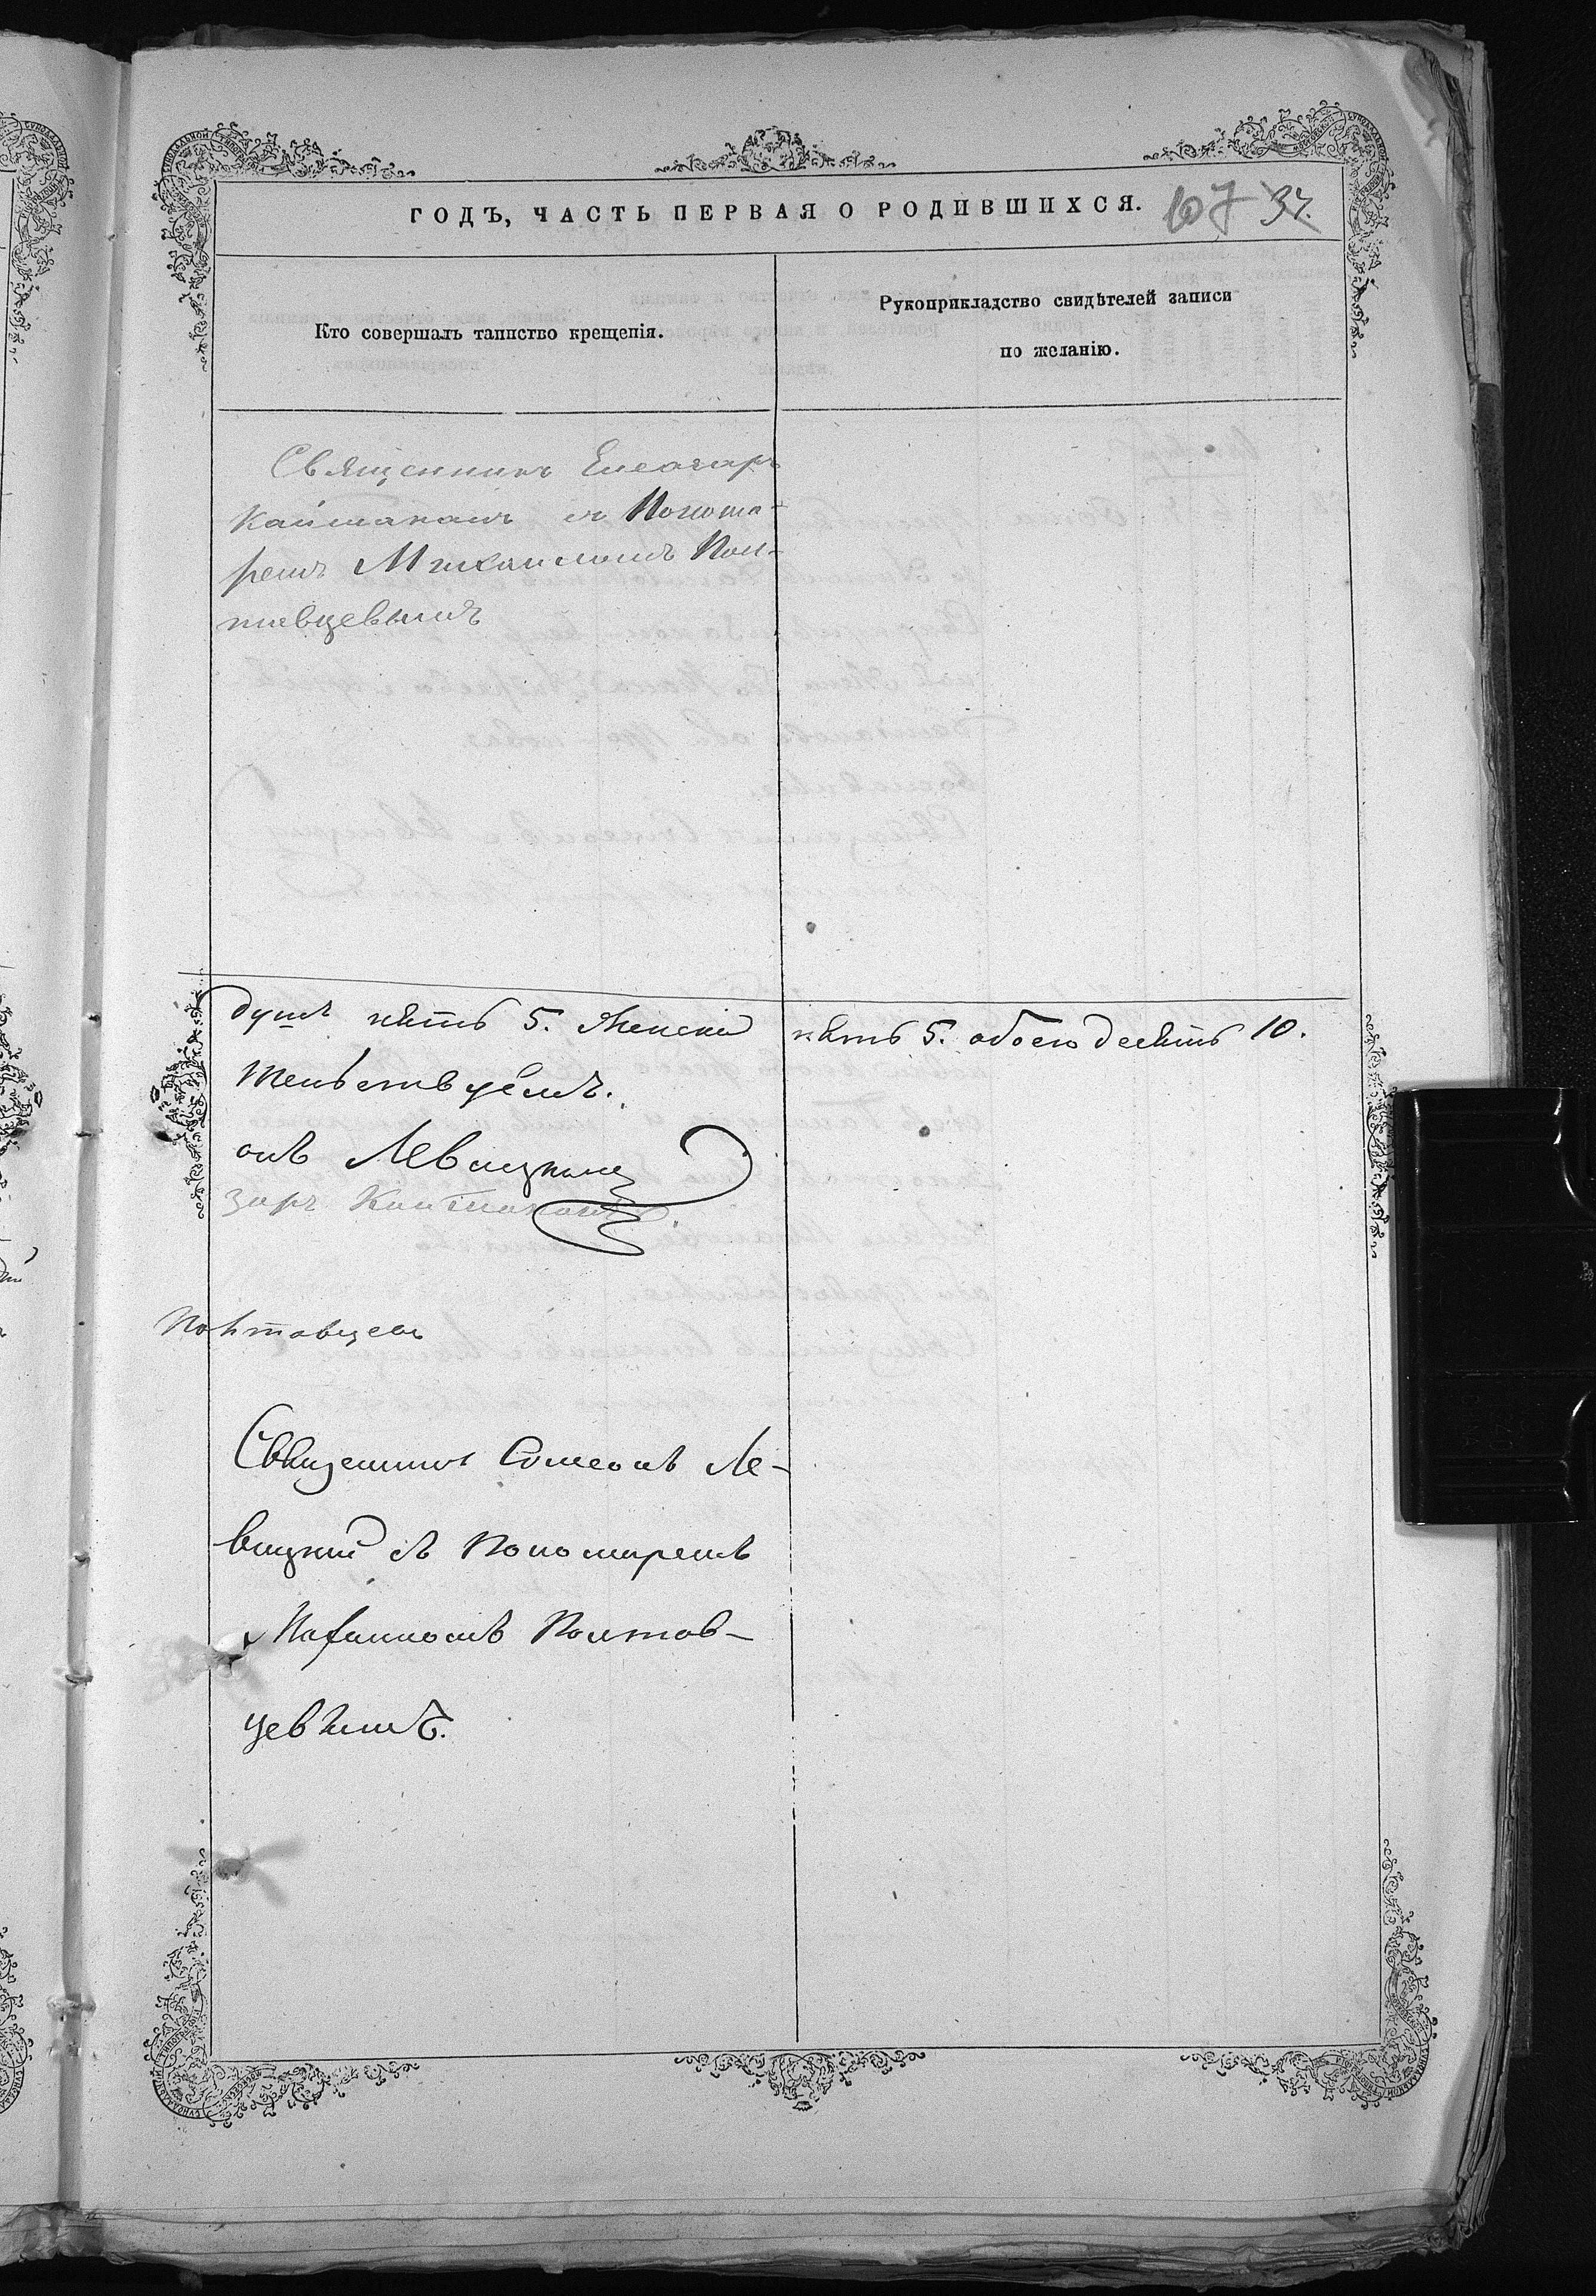 ГОДЪ, ЧАСТЬ ПЕРВАЯ О РОДИВШИХСЯ. 107 37.
Кто совершалъ таинство крещенія.
Рукоприкладство свидѣтелей записи
по желанію.
Священникъ Елеазаръ
Кайтанамъ съ Понома-
ремъ Михаиломъ Пол-
тавцевымъ
душъ пять 5. Женска пять 5. обоего десять 10.
тельствуемъ.
онъ Левицкій
заръ
Полтавцевъ
Священникъ Симеонъ Ле-
вицкій съ Пономаремъ
Михаиломъ Полтав-
цевымъ.